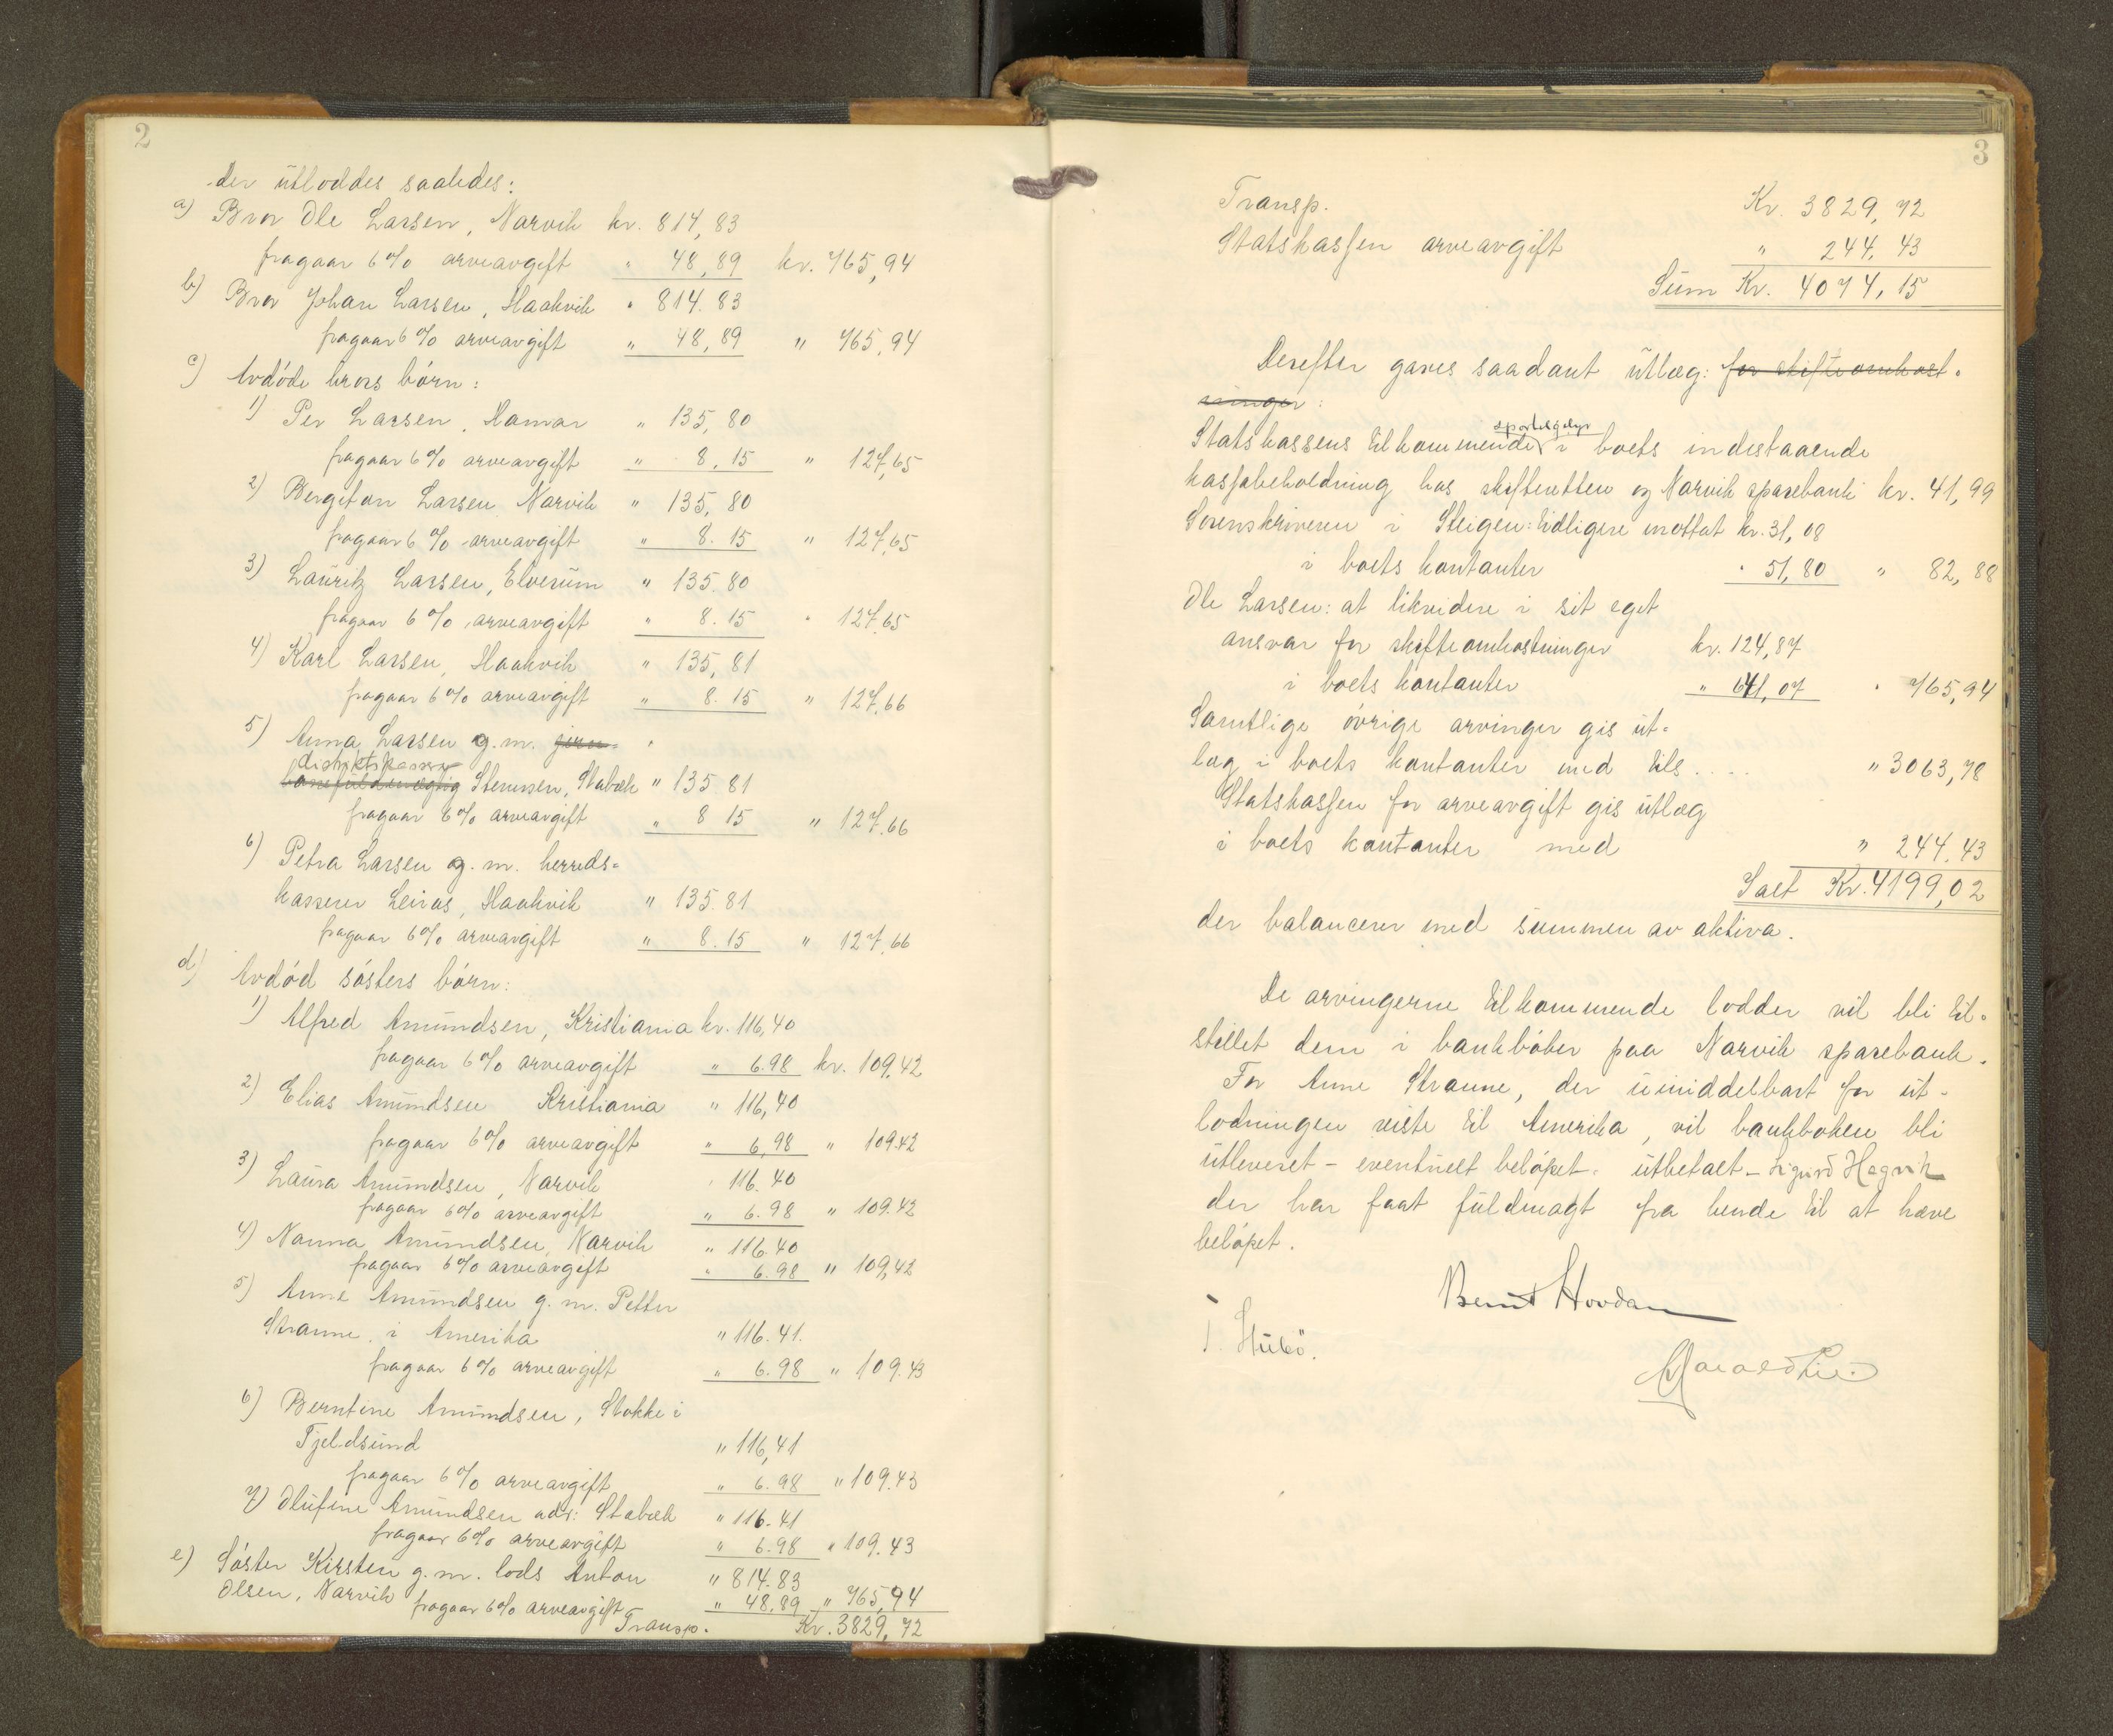 2
der ütloddes saaledes:
a) Bror Ole Larsen, Narvik kr. 814,83
fragaar 6% arveavgift " 48,89 kr. 765,94
b) Bror Johan Larsen, Haakvik " 814.83
fragaar 6% arveavgift " 48,89 " 765,94
c) Avdöde brors börn:
1) Per Larsen, Hamar " 135,80
fragaar 6% arveavgift " 8,15 " 127,65
2) Bergiton Larsen Narvik " 135,80
fragaar 6% arveavgift " 8.15 " 127,65
3) Lauritz Larsen, Elverum " 135.80
fragaar 6% arveavgift " 8.15 " 127,65
4) Karl Larsen, Haakvik " 135,81
fragaar 6% arveavgift " 8.15 " 127,66
5) Anna Larsen g.m.
distriktskasserer
Stenersen, Stabæk " 135.81
fragaar 6% arveavgift " 8 15 " 127,66
6) Petra Larsen g.m. herreds-
kasserer Leiros, Haakvik " 135.81
fragaar 6% arveavgift " 8.15 " 127,66
d) Avdöd sösters börn:
1) Alfred Amundsen, Kristiania kr. 116,40
fragaar 6% arveavgift " 6.98 kr. 109,42
2) Elias Amundsen Kristiania " 116,40
fragaar 6% arveavgift " 6,98 " 109.42
3) Laura Amundsen, Narvik " 116.40
fragaar 6% arveavgift " 6.98 " 109.42
4) Nanna Amundsen, Narvik " 116.40
fragaar 6% arveavgift " 6.98 " 109,42
5) Anne Amundsen g.m. Petter
Stranne, i Amerika " 116.41.
fragaar 6% arveavgift " 6.98 " 109.43
6) Berntine Amundsen, Stokke i
Fjeldsund " 116,41
fragaar 6% arveavgift " 6.98 " 109.43
7) Olufine Amundsen adr: Stabæk " 116.41
fragaar 6% arveavgift " 6.98 " 109.43
e) Söster Kirsten g.m. lods Anton " 814.83
Olsen, Narvik fragaar 6% arveavgift " 48.89 " 765,94
Transp. Kr. 3829,72
3
Transp. Kr. 3829,72
Statskassen arveavgift " 244,43
Sum Kr. 4074,15
Derefter gaves saadant utlæg: for skifteomkost-
ninger:
sportelgebyr
Statskassens tilkommende i boets indestaaende
kassabeholdning hos skifteretten og Narvik sparebank kr. 41,99
Sorenskriveren i Steigen: tidligere mottat kr. 31,08
i boets kontanter " 51,80 " 82,88
Ole Larsen: at likvidere i sit eget
ansvar for skifteomkostninger kr. 124,87
i boets kontanter " 641,07 " 765,94
Samtlige övrige arvinger gis ut-
læg i boets kontanter med tils.... " 3063,78
Statskassen for arveavgift gis utlæg
i boets kontanter med " 244,43
Ialt Kr. 4199,02
der balancerer med summen av aktiva.
De arvingerne tilkommende lodder vil bli til-
stillet dem i bankböker paa Narvik sparebank.
For Anne Stranne, der umiddelbart för ut-
lodningen reiste til Amerika, vil bankboken bli
utleveret - eventuelt belöpet utbetalt - Sigurd Hegvik
der har faat fuldmagt fra hende til at hæve
belöpet.
Bernt Hovdan
T. Hubö.